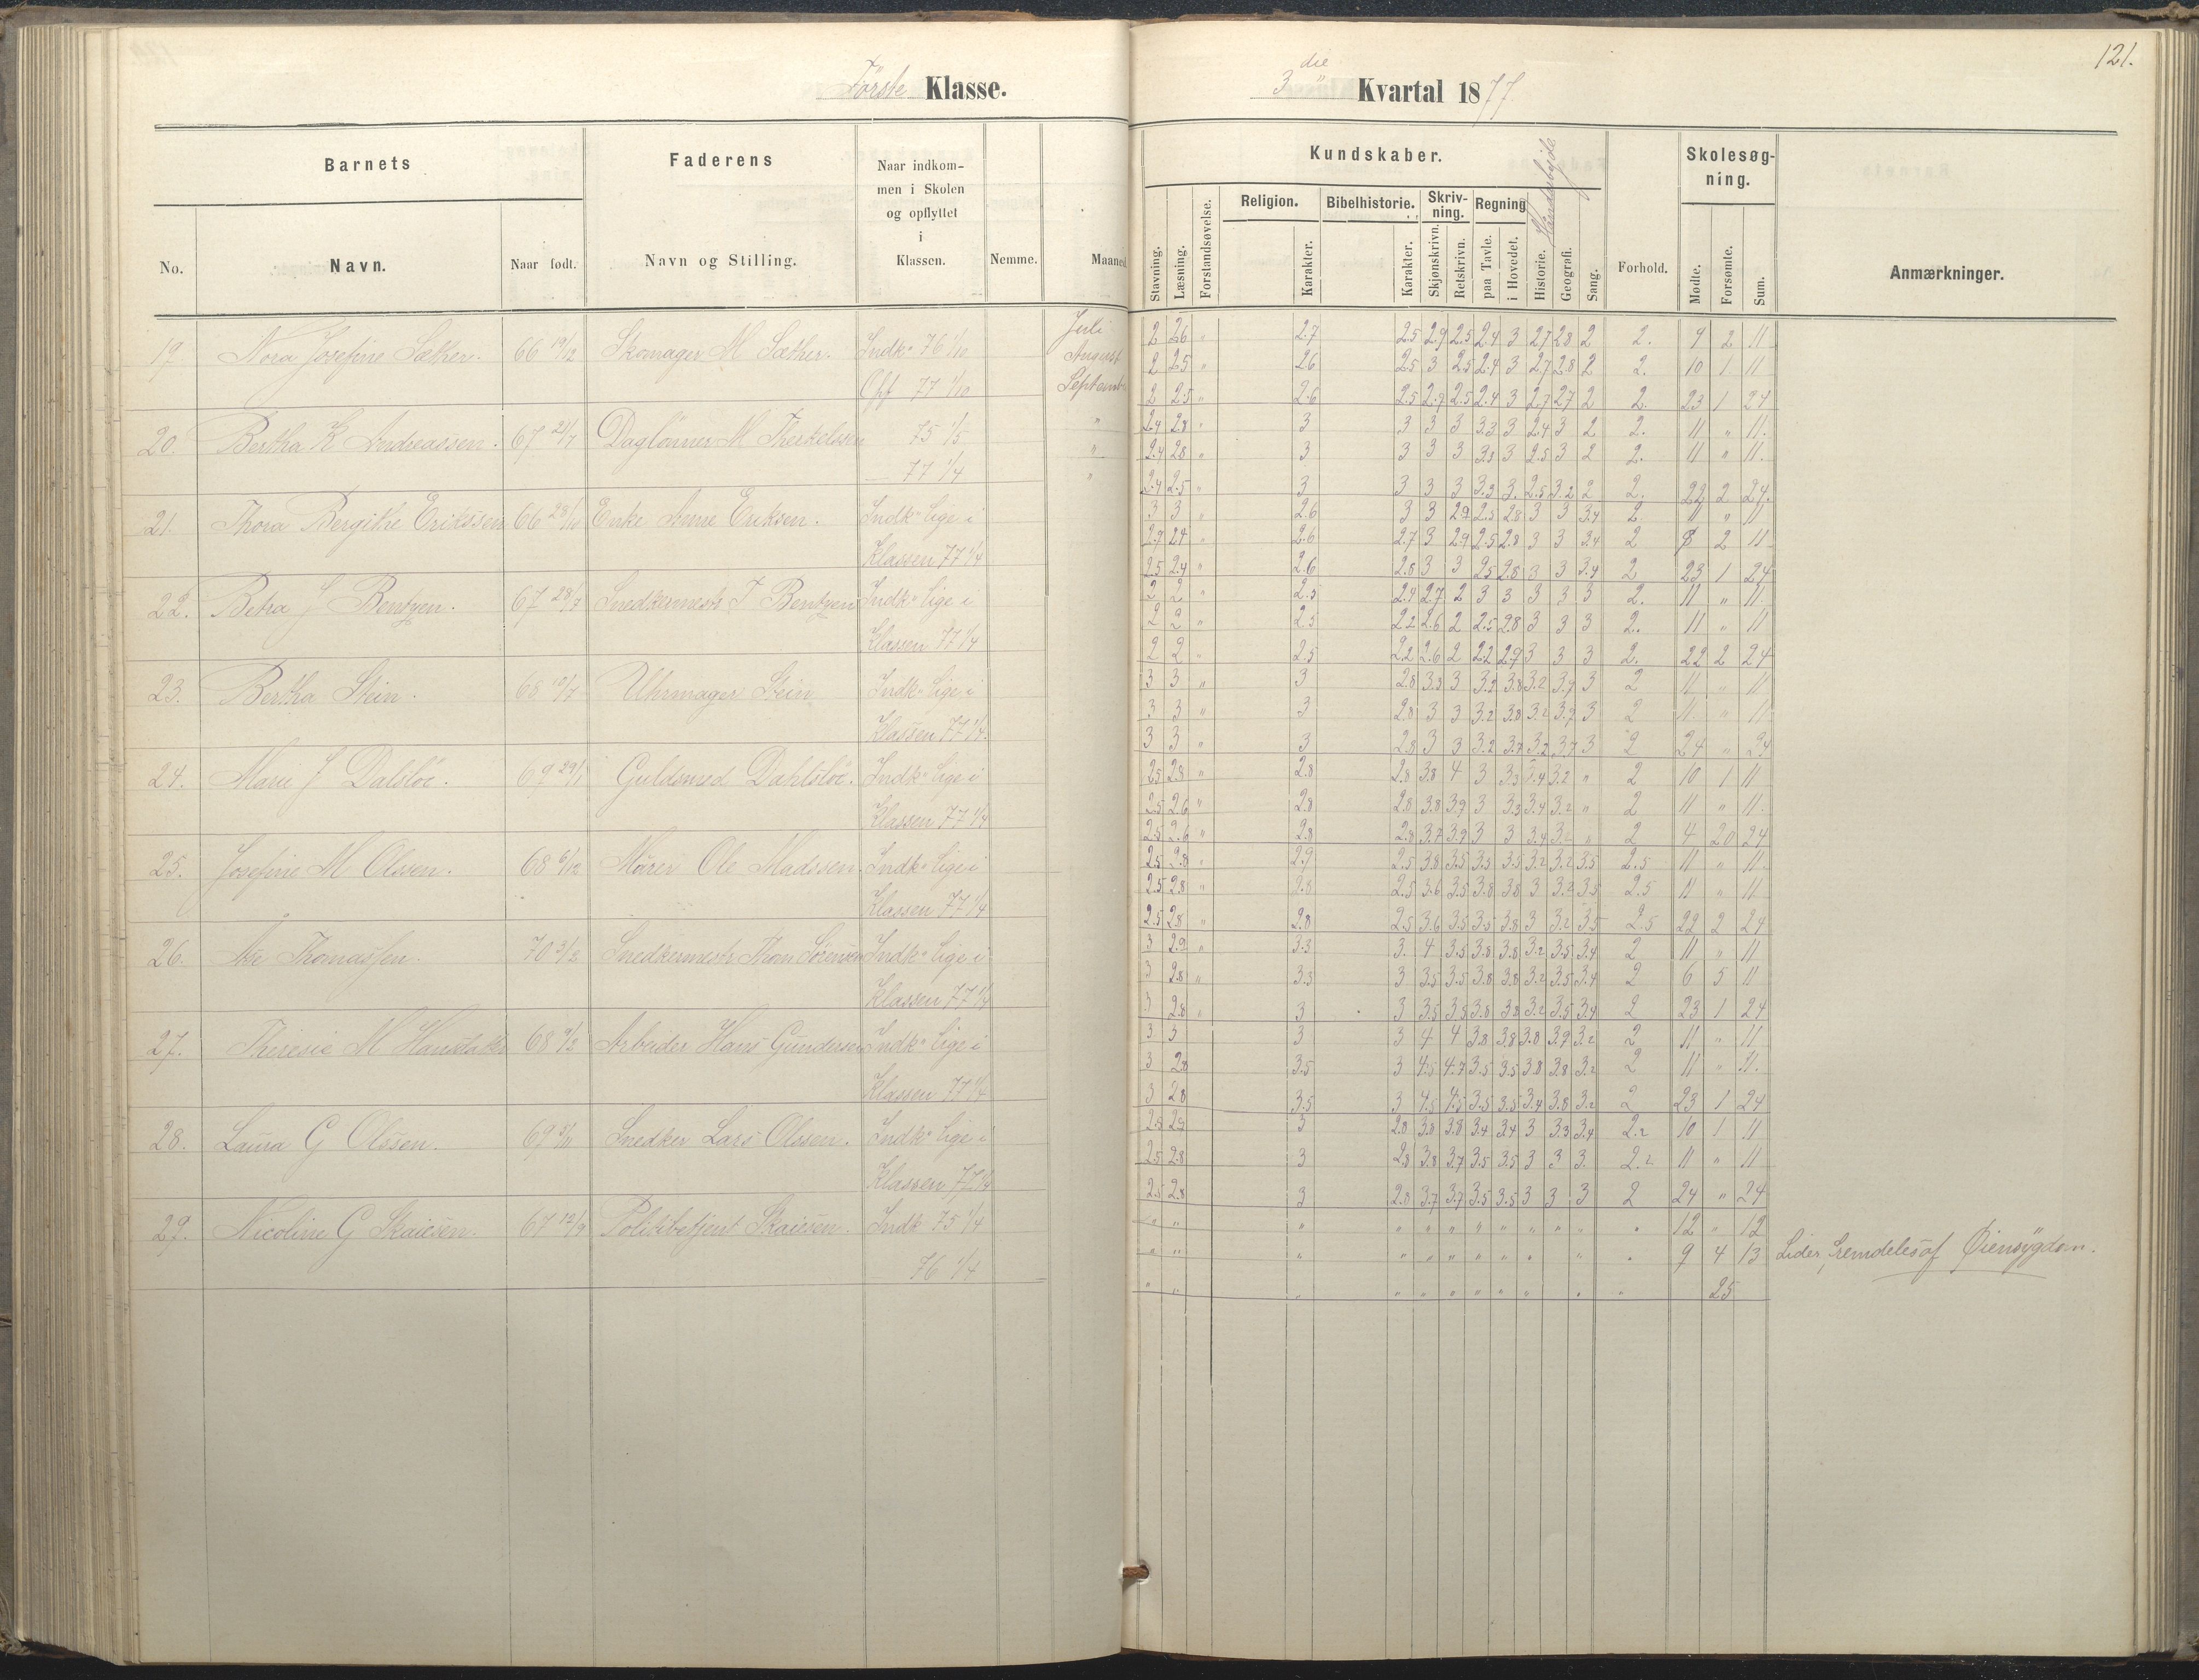 121.
Første Klasse.
3 die Kvartal 1877
Barnets
Faderens
Naar indkom-
men i Skolen
og opflyttet
i
Klassen.
No.
Navn.
Naar født.
Navn og Stilling.
Nemme.
Maaned
Kundskaber.
Skolesøg-
ning.
Stavning.
Læsning.
Forstandsøvelse.
Religion.
Karakter.
Bibelhistorie.
Karakter.
Skriv-
ning.
Skjønskrivn.
Retskrivn.
Regning
paa Tavle.
i Hovedet.
Historie.
Geografi.
Sang.
Forhold.
Mødte.
Forsømte.
Sum.
Anmærkninger.
19. Nora Josefine Sæther. 66 19/12 Skomager M Sæther. Indk. 76 1/10 Juli 2 2.6 " 2.7 2.5 2.9 2.5 2.4 3 2.7 2.8 2 2. 9 2 11
August 2 2.5 " 2.6 2.5 3 2.5 2.4 3 2.7 2.8 2 2. 10 1 11
Opf 77 1/10 Septemb. 2 2.5 " 2.6 2.5 2.7 2.5 2.4 3 2.7 2.7 2 2. 23 1 24
20. Bertha K Andreassen. 67 21/7 Daglønner M Therkelssen 75 1/5 " 2.4 2.8 " 3 3 3 3 3.3 3 2.4 3 2 2. 11 " 11.
" 2.4 2.8 " 3 3 3 3 3.3 3 2.5 3 2 2. 11 " 11.
77 1/4 " 2.4 2.5 " 3 3 3 3 3.3 3. 2.5 3.2 2 2. 22 2 24.
21. Thora Bergithe Erikssen 66 28/10 Enke Anne Eriksen. Indk. lige i 3 3 " 2.6 3 3 2.9 2.5 2.8 3 3 3.4 2. 11 " 11
2.7 2.4 " 2.6 2.7 3 2.9 2.5 2.8 3 3 3.4 2 2 11
Klassen 77 1/4 2.5 2.4 " 2.6 2.8 3 3 2.5 2.8 3 3 3.4 2 23 1 24
22. Petra J Bentzen. 67 28/7 Snedkermestr J Bentzen Indk. lige i 2 2 " 2.5 2.4 2.7 2 3 3 3 3 3 2. 11 " 11.
2 2 " 2.5 2.2 2.6 2 2.5 2.8 3 3 3 2. 11 " 11
Klassen 77 1/4 2 2 " 2.5 2.2 2.6 2 2.2 2.7 3 3 3 2. 22 2 24
23. Bertha Stein. 68 10/7 Uhrmager Stein Indk. lige i 3 3 " 3 2.8 3.3 3 3.2 3.8 3.2 3.7 3 2 11 " 11
3 3 " 3 2.8 3 3 3.2 3.8 3.2 3.7 3 2 11. " 11
Klassen 77 1/4. 3 3 " 3 2.8 3 3 3.2 3.7 3.2 3.7 3 2 24 " 24
24. Marie J Dalsløe. 69 29/1 Guldsmed Dahlsløe. Indk. lige i 2.5 2.8 " 2.8 2.8 3.8 4 3 3.3 3.4 3.2 " 2 10 1 11
2.5 2.6 " 2.8 2.8 3.8 3.9 3 3.3 3.4 3.2 " 2 11 " 11.
Klassen 77 1/4 2.5 2.6 " 2.8 2.8 3.7 3.9 3 3 3.4 3.2 " 2 4 20 24
25. Josefine M Olssen. 68 6/12 Murer Ole Madssen. Indk. lige i 2.5 2.8 " 2.9 2.5 3.8 3.5 3.5 3.5 3.2 3.2 3.5 2.5 11 " 11.
2.5 2.8 " 2.8 2.5 3.6 3.5 3.8 3.8 3 3.2 3.5 2.5 11 " 11
Klassen 77 1/4 2.5 2.8 " 2.8 2.5 3.6 3.5 3.5 3.8 3 3.2 3.5 2.5 22 2 24
26. Thomassen. 70 3/2 Snedkermestr Thom Sørensen Indk. lige i 3 2.9 " 3.3 3. 4 3.5 3.8 3.8 3.2 3.5 3.4 2 11 " 11
3 2.8 " 3.3 3 3.5 3.5 3.8 3.8 3.2 3.5 3.4 2 6 5 11
Klassen 77 1/4 3 2.8 " 3 3 3.5 3.5 3.8 3.8 3.2 3.5 3.4 2 23 1 24
27. Theresie M 68 9/2 Arbeider Hans Gundersen Indk. lige i 3 3 3 3 4 4 3.8 3.8 3.8 3.9 3.2 2 11 " 11
3 2.8 3.5 3 4.5 4.7 3.5 3.5 3.8 3.8 3.2 2 11 " 11.
Klassen 77 1/4 3 2.8 3.5 3 4.5 4.5 3.5 3.5 3.4 3.8 3.2 2 23 1 24
28. Laura G Olssen. 69 5/11 Snedker Lars Olssen. Indk. lige i 2.8 2.9 3 2.8 3.8 3.8 3.4 3.4 3 3.3 3.4 2.2 10 1 11
2.5 2.8 3 2.8 3.8 3.7 3.5 3.5 3 3 3. 2.2 11 " 11
Klassen 77 1/4 2.5 2.8 3 2.8 3.7 3.7 3.5 3.5 3 3 3 2 24 " 24
29. Nicoline G Skaiesen. 67 12/9 Politibetjent Skaiesen. Indk 75 1/4 " " " " " " " " " " " " 12 " 12
" " " " " " " " " " " 9 4 13 Lider fremdeles af Øiensygdom.
76 1/4 " " " " " " " " " " " 25